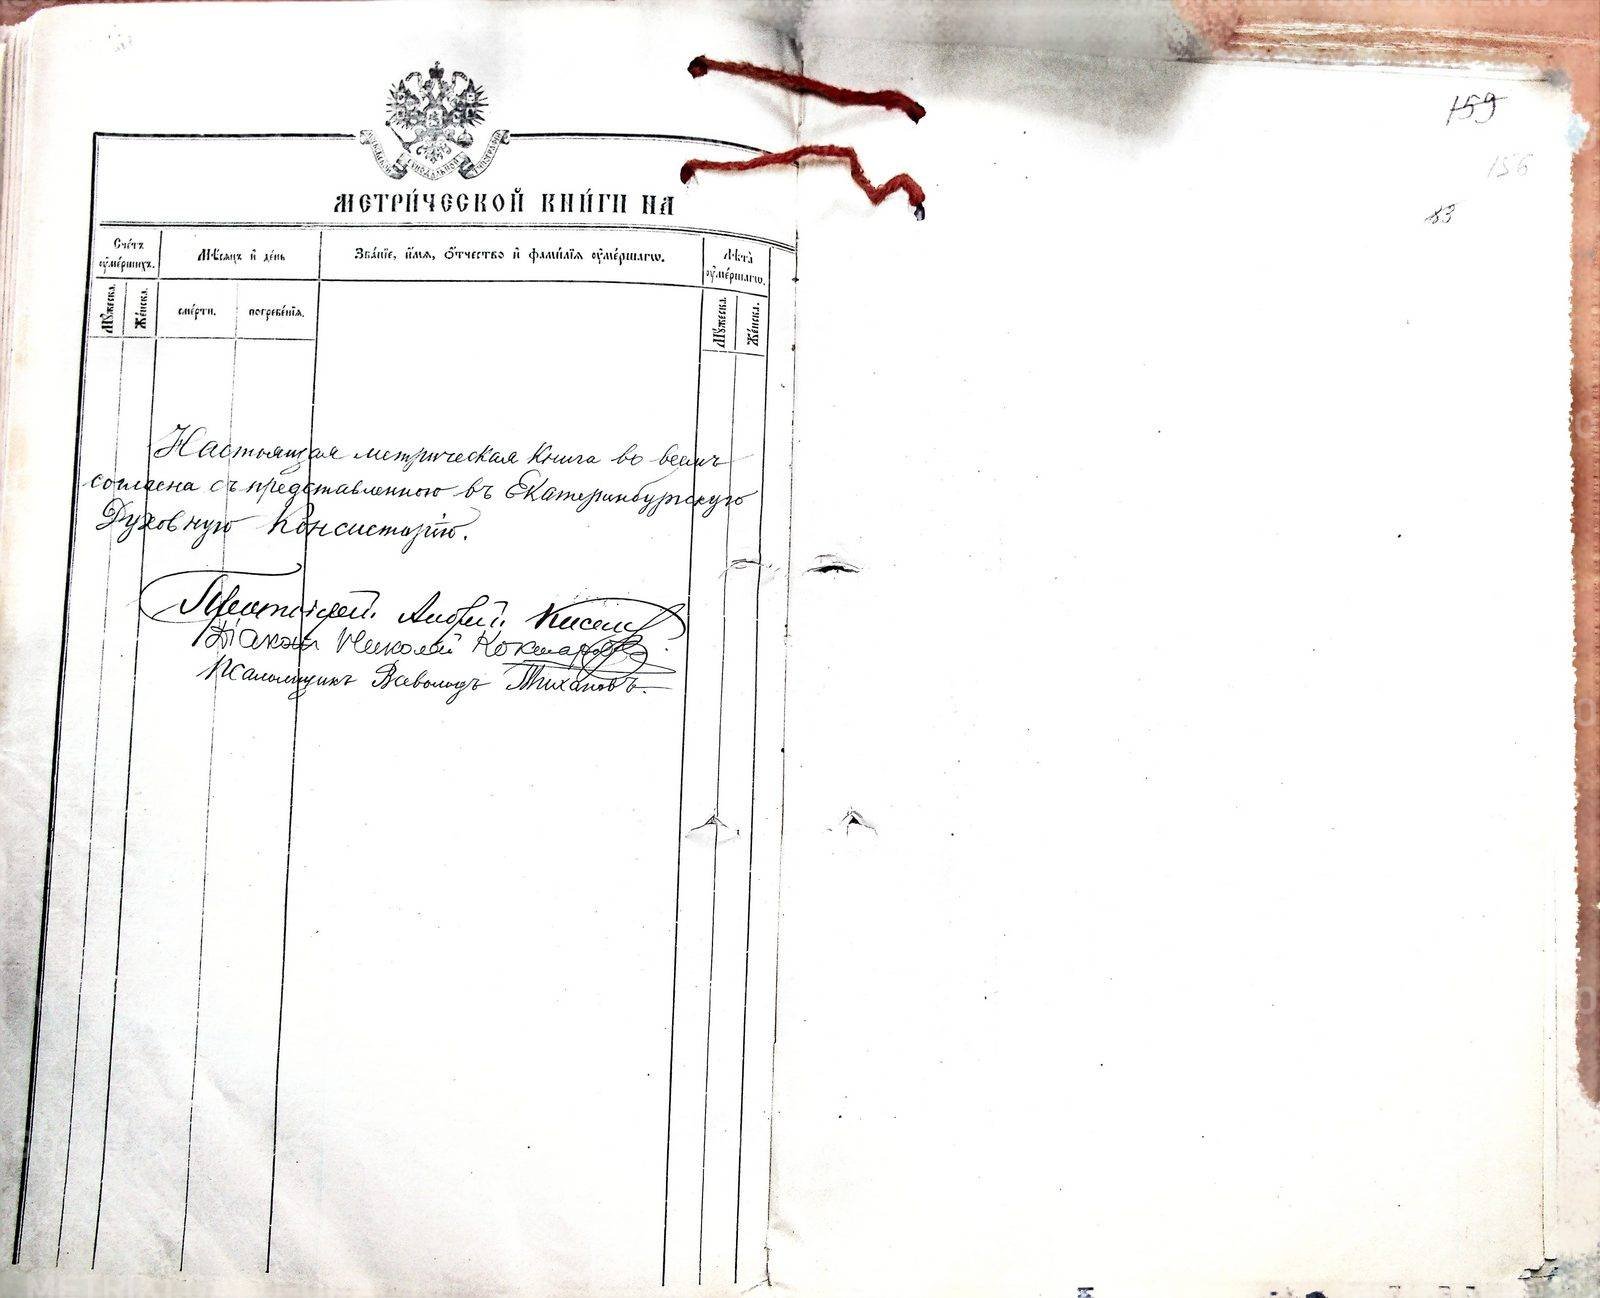 МЕТРИ́ЧЕСКОЙ КНИ́ГИ НА
Сче́тъ
ᲂу҆ме́ршихъ.
Мѣ́сяцъ и҆ де́нь
Зва́нїе, и҆́мѧ, ѻ҆́тчество и҆ фами́лїѧ ᲂу҆ме́ршагѡ.
Лѣ́та
ᲂу҆ме́ршагѡ.
Мꙋ́жеска.
Же́нска.
сме́рти.
погребе́нїѧ.
Мꙋ́жеска.
Же́нска.
Настоящая метрическая книга во всемъ
согласна съ представленною въ Екатеринбургскую
Духовную Консисторію.
Протоіерей Андрей
Діаконъ Николай Кокшаровъ
Псаломщикъ Всеволодъ Тихановъ.
159
156
83